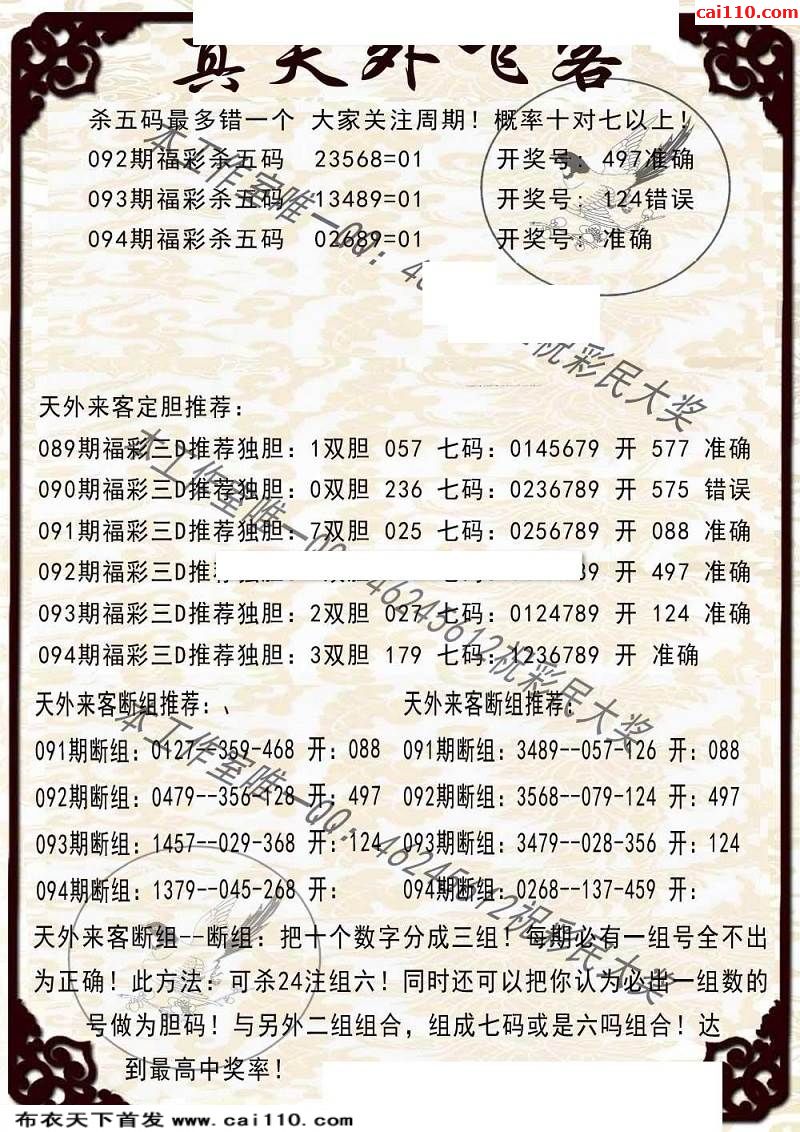 cai110.com
真天外飞客
杀五码最多错一个 大家关注周期！概率十对七以上！
092期福彩杀五码 23568=01 开奖号：497准确
093期福彩杀五码 13489=01 开奖号：124错误
094期福彩杀五码 02689=01 开奖号：准确
天外来客定胆推荐：
089期福彩三D推荐独胆：1双胆 057 七码：0145679 开 577 准确
090期福彩三D推荐独胆：0双胆 236 七码：0236789 开 575 错误
091期福彩三D推荐独胆：7双胆 025 七码：0256789 开 088 准确
092期福彩三D推荐独胆： 89 开 497 准确
093期福彩三D推荐独胆：2双胆 027 七码：0124789 开 124 准确
094期福彩三D推荐独胆：3双胆 179 七码：1236789 开 准确
天外来客断组推荐：、 天外来客断组推荐：
091期断组：0127--359-468 开：088 091期断组：3489--057-126 开：088
092期断组：0479--356-128 开：497 092期断组：3568--079-124 开：497
093期断组：1457--029-368 开：124 093期断组：3479--028-356 开：124
094期断组：1379--045-268 开： 094期断组：0268--137-459 开：
天外来客断组--断组：把十个数字分成三组！每期必有一组号全不出
为正确！此方法：可杀24注组六！同时还可以把你认为必出一组数的
号做为胆码！与另外二组组合，组成七码或是六吗组合！达
到最高中奖率！
本工作室唯一QQ：46 祝彩民大奖
本工作室唯一QQ：46245612祝彩民大奖
本工作室唯一QQ：46245612祝彩民大奖
布衣天下首发 www.cai110.com